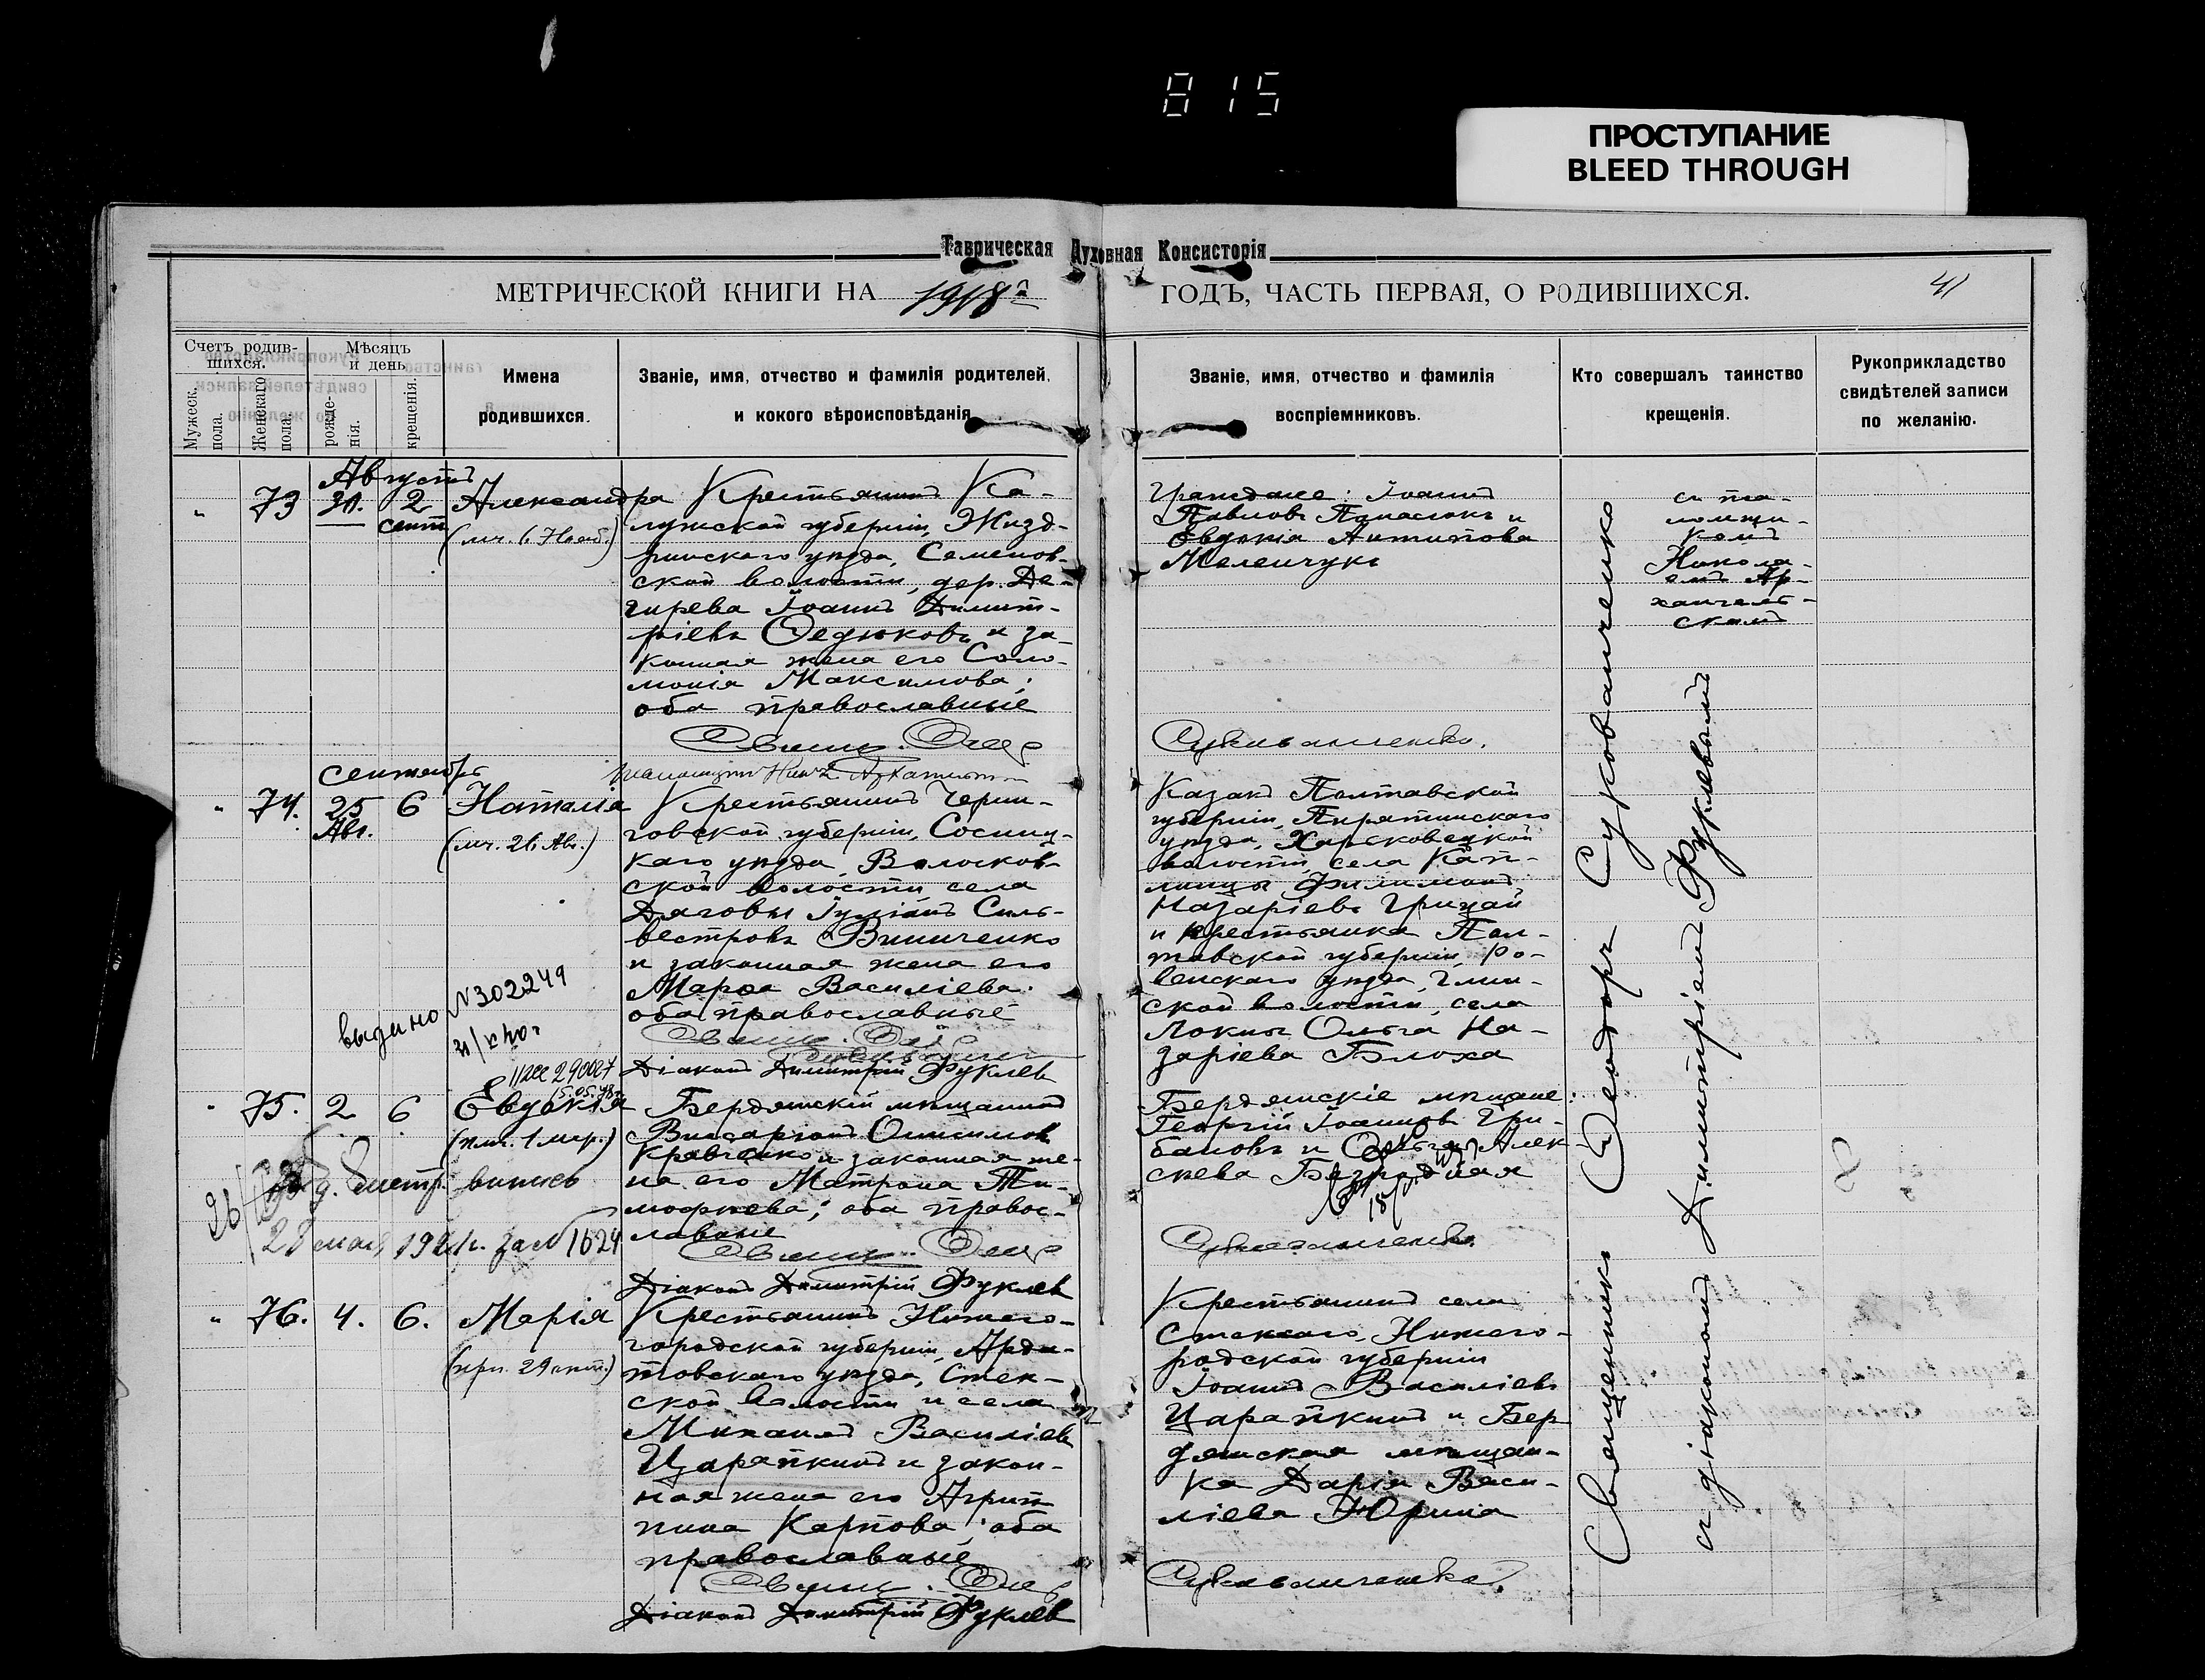 815
ПРОСТУПАНИЕ
BLEED THROUGH
Таврическая Духовная Консисторія
МЕТРИЧЕСКОЙ КНИГИ НА 1918й ГОДЪ, ЧАСТЬ ПЕРВАЯ, О РОДИВШИХСЯ.
41
Счетъ родив-
шихся.
Мужеск.
пола.
Женскаго
пола.
Мѣсяцъ
и день
рожде-
нія.
крещенія.
Имена
родившихся.
Званіе, имя, отчество и фамилія родителей,
и кокого вѣроисповѣданія
Званіе, имя, отчество и фамилія
воспріемниковъ.
Кто совершалъ таинство
крещенія.
Рукоприкладство
свидѣтелей записи
по желанію.
Августъ
" 73 30. 2 Александра
сент
(мч. 6 Нояб.)
Крестьянинъ Ка-
лужской губерніи, Жизд-
ринскаго уѣзда, Семенов-
ской волости, дер. Де-
гирева Іоаннъ Димит-
ріевъ Ѳедюковъ и за-
конная жена его Соло-
монія Максимова;
оба православные
Свящ. Ѳеод.
Граждане: Іоаннъ
Павловъ Панасюкъ и
Евдокія Антипова
Меленчукъ
Сукованченко.
съ пса-
ломщи-
комъ
Никола-
емъ Ар-
хангель-
скимъ
сентябрь
" 74. 25 6 Наталія
Авг.
(мч. 26 Авг.)
Крестьянинъ Черни-
говской губерніи, Сосниц-
каго уѣзда, Волосков-
ской волости села
Дяговы Іуліанъ Силь-
вестровъ Винниченко
и законная жена его
Марѳа Василіева.
оба православные
Діаконъ Димитрій Фуклевъ
Казакъ Полтавской
губерніи, Пирятинскаго
уѣзда, Харсковецкой
волости, села Кап-
лицы Филимонъ
Назаріевъ Грицай
и крестьянка Пол-
тавской губерніи, Ро-
менскаго уѣзда, Глин-
ской волости, села
Локны Ольга На-
заріева Блоха
выдано N302249
" 75. 2 6 Евдокія
(пмч. 1 мар.)
Бердянскій мѣщанинъ
Виссаріонъ Онисимовъ
Кравченко и законная же-
на его Матрона Ти-
моѳеева; оба правос-
лавные
Свящ. Ѳеод.
Діаконъ Димитрій Фуклевъ
Бердянскіе мѣщане:
Георгій Іоанновъ Гри-
бановъ и Ольга Алек-
сѣева Безродная
Сукованченко.
28 мая 192 г. за N 1624
" 76. 4. 6. Марія
(прп. 29 окт.)
Крестьянинъ Нижего-
родской губерніи, Арда-
товскаго уѣзда, Стек-
ской волости и села
Михаилъ Василіевъ
Царапкинъ и закон-
ная жена его Агрип-
пина Карпова; оба
православные
Свящ. Ѳеод.
Діаконъ Димитрій Фуклевъ
Крестьянинъ села
Стексаго, Нижего-
родской губерніи
Іоаннъ Василіевъ
Царапкинъ и Бер-
дянская мѣщан-
ка Дарія Васи-
ліева Юрина
Сукованченко.
Священникъ Ѳеодоръ Сукованченко
съ діакономъ Димитріемъ Фуклевымъ